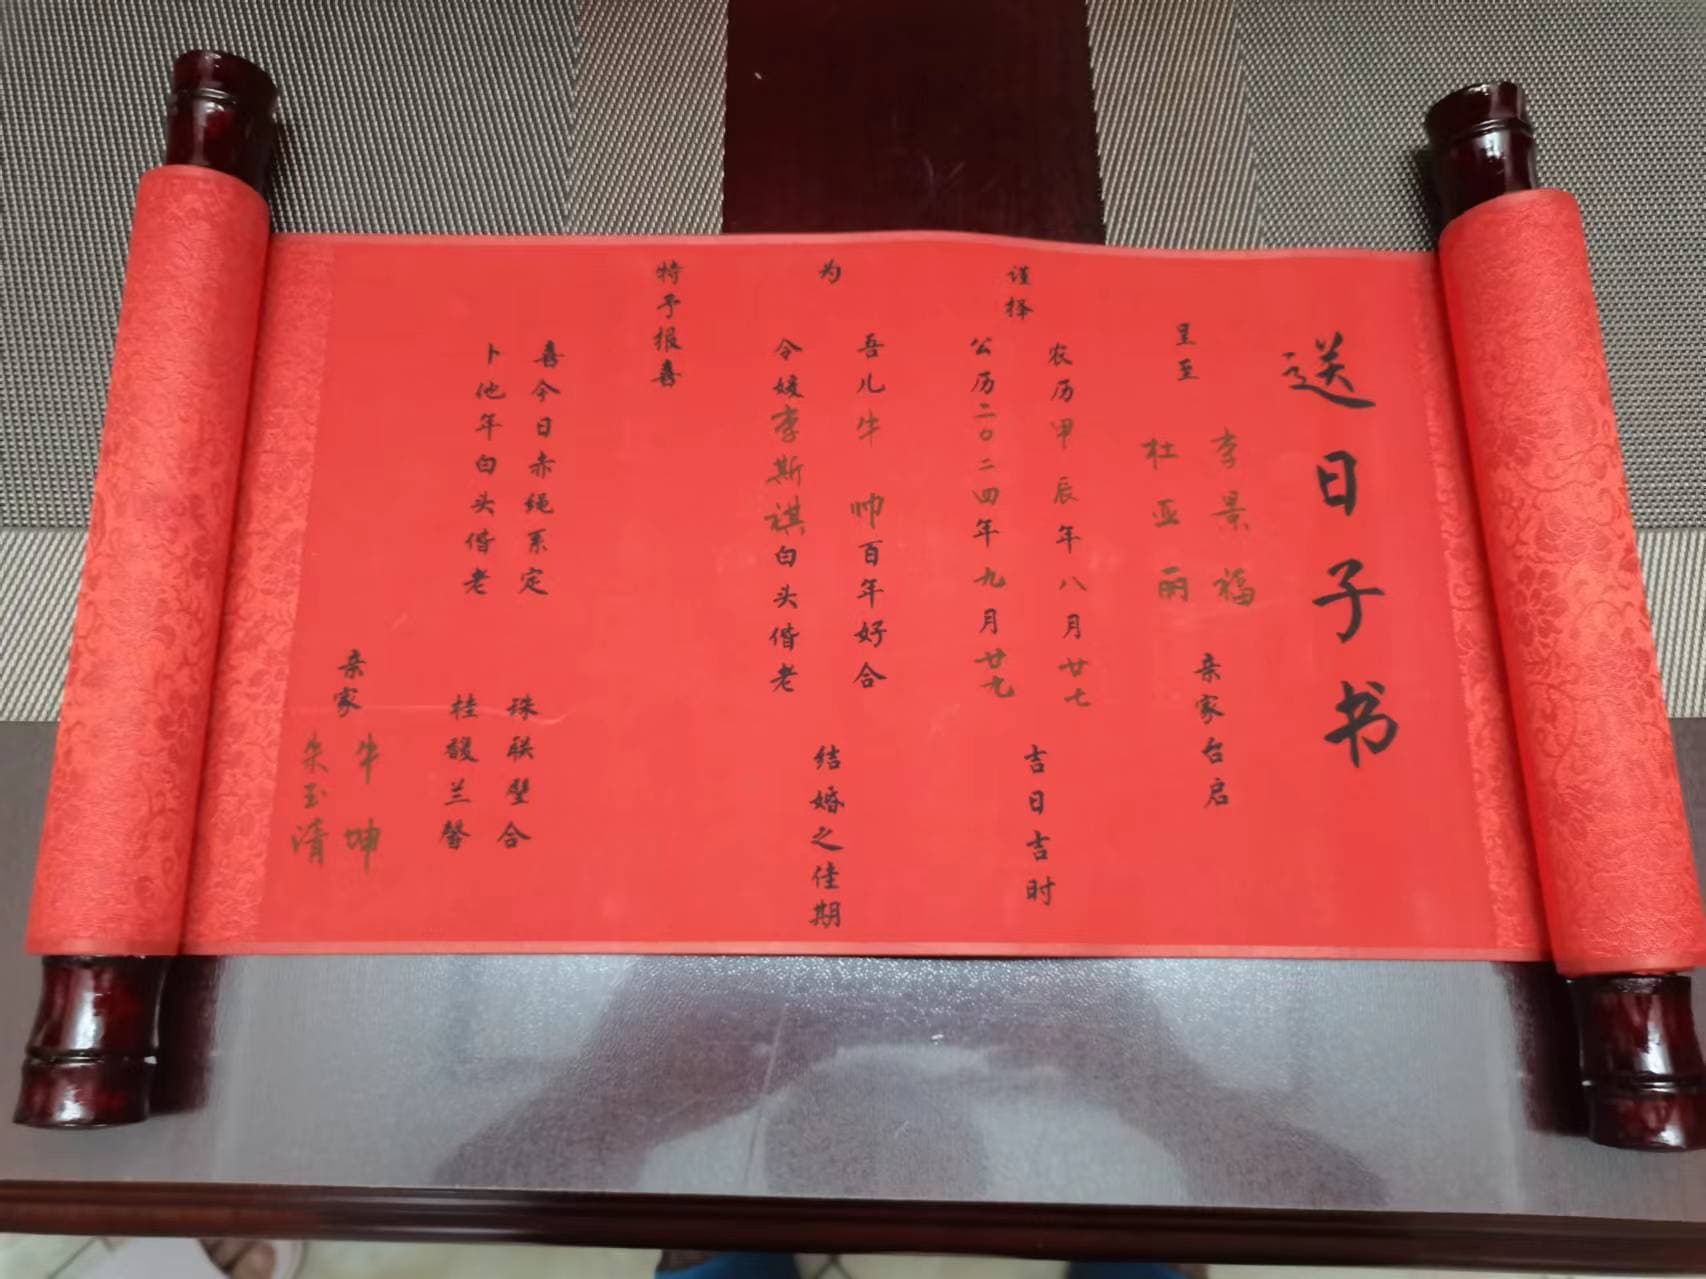 送日子书
呈至
李景福
杜亚丽
亲家台启
谨择
农历甲辰年八月廿七
公历二〇二四年九月廿九
吉日吉时
为
吾儿牛帅百年好合
令嫒李斯祺白头偕老
结婚之佳期
特予报喜
喜今日赤绳系定
珠联璧合
卜他年白头偕老
桂馥兰馨
亲家
牛坤
朱玉清